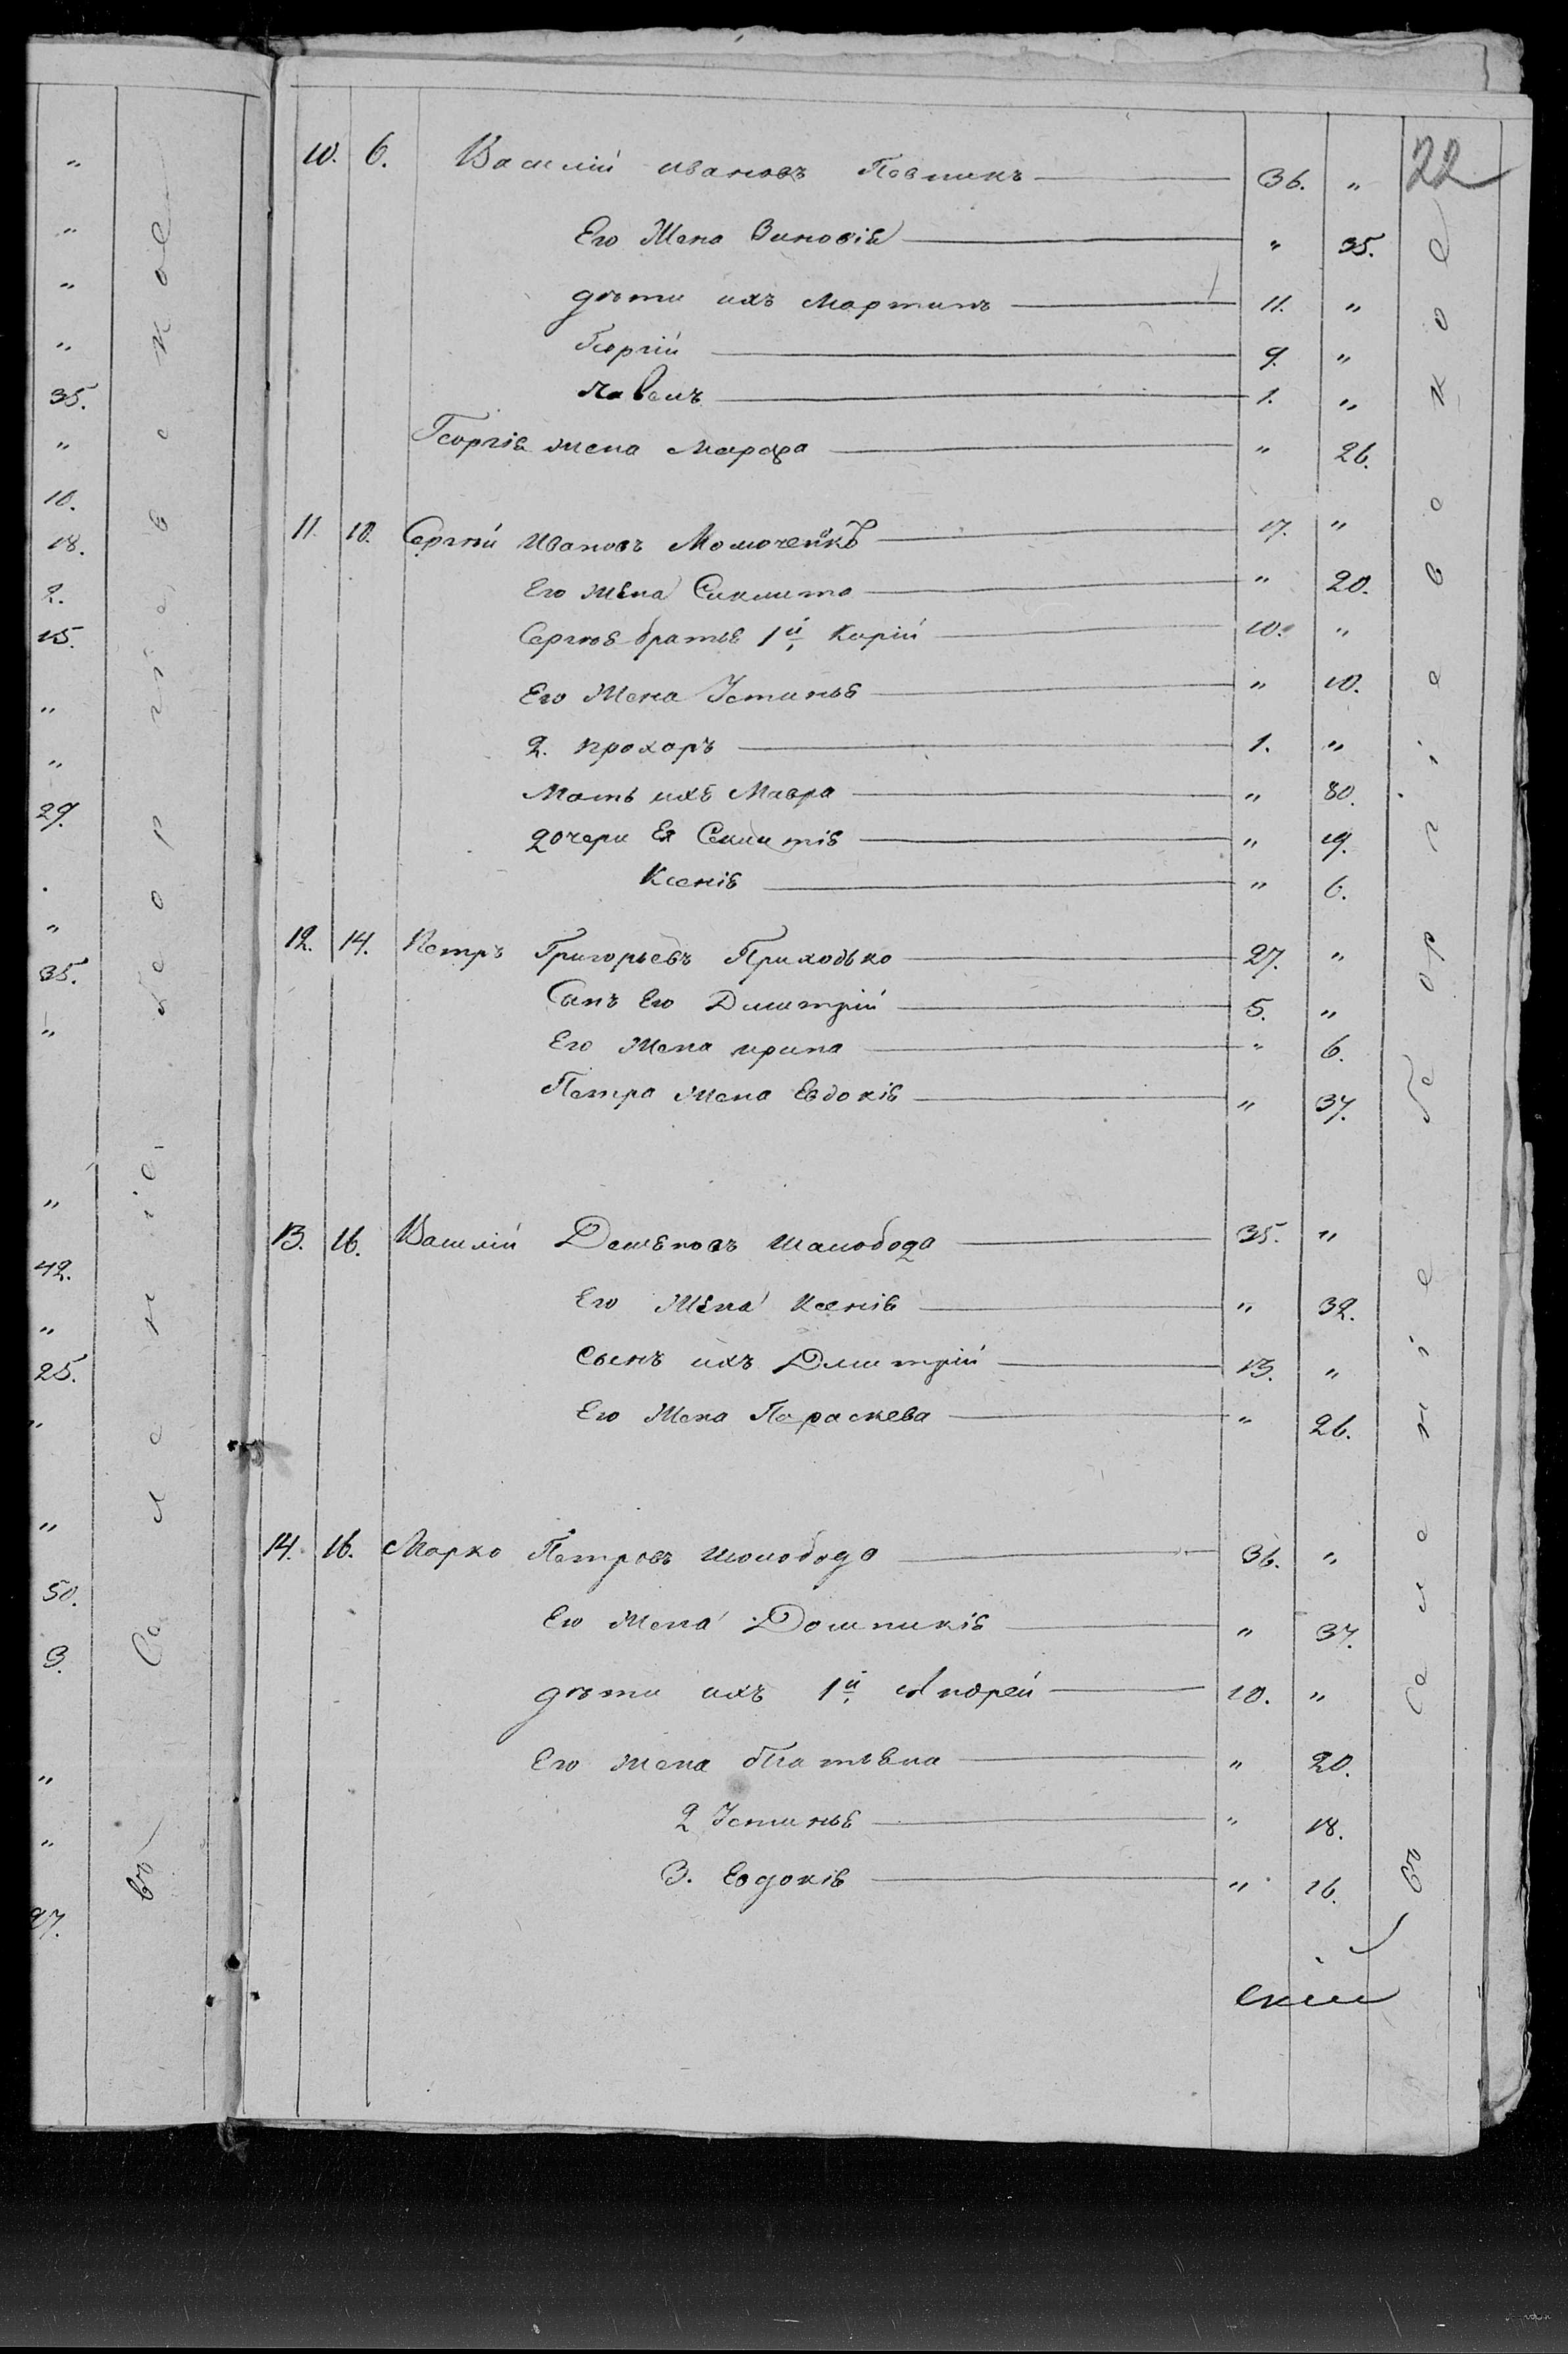 22
10. 6. Василій Ивановъ 36. "
Его Жена Зиновія " 35.
дѣти ихъ Мартинъ 11. "
Георгій 9. "
Павелъ 1. "
Георгія жена Марфа " 26.
11. 10. Сергѣй Ивановъ 17. "
Его жена " 20.
Сергѣя братья 1й Кирій 10. "
Его Жена Устинья " 10.
2. Прохоръ 1. "
Мать ихъ Мавра " 80.
дочери Ея " 19.
Ксенія " 6.
12. 14. Петръ Григорьевъ Приходько 27. "
Сынъ Его Дмитрій 5. "
Его Жена Ирина " 6.
Петра Жена Евдокія " 37.
13. 16. Василій Шолобода 35. "
Его Жена Ксенія " 32.
Сынъ ихъ Дмитрій 13. "
Его Жена Параскева " 26.
14. 16. Марко Петровъ Шолобода 36. "
Его Жена Домникія " 37.
дѣти ихъ 1й Андрей 10. "
Его жена Татьяна " 20.
2 Устинья " 18.
3. Евдокія " 16.
Въ Селеніе Беоргіевское
скій
"
"
"
"
35.
"
10.
18.
2.
15.
"
"
29.
"
35.
"
"
42.
"
25.
"
"
50.
3.
"
"
27.
Въ Селеніе, Беоргіевское